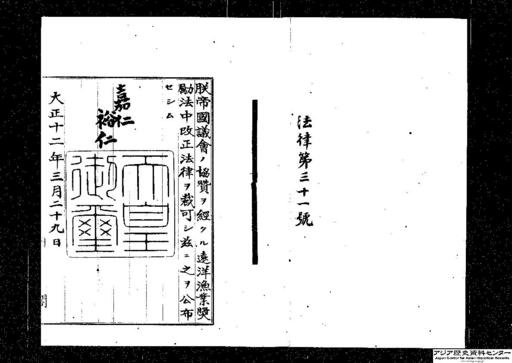 法律第三十一號
朕帝國議會ノ協贊ヲ經タル遠洋漁業奬
勵法中改正法律ヲ裁可シ茲ニ之ヲ公布
セシム
嘉仁
裕仁
天皇
御璽
大正十二年三月二十九日
アジア歴史資料センター
Japan Center for Asian Historical Records